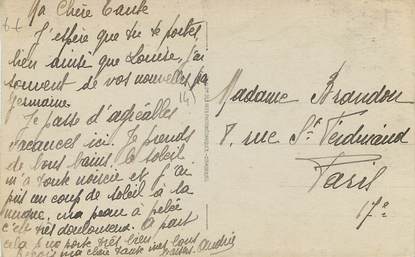 Ma Chère Tante
J'espère que tu te portes
bien ainsi que Louise, j'ai
souvent de vos nouvelles par
Germaine.
Je passe d'agréables
vacances ici. Je prends
de bons bains. Le soleil
m'a toute noircie et j'ai
pris un coup de soleil à la
nuque, ma peau a pelée
c'est très douloureux. A part
cela je me porte très bien.
ma chère tante mes bons
baisers. Andrée
Madame Brandon
8, rue St Ferdinand
Paris
17e